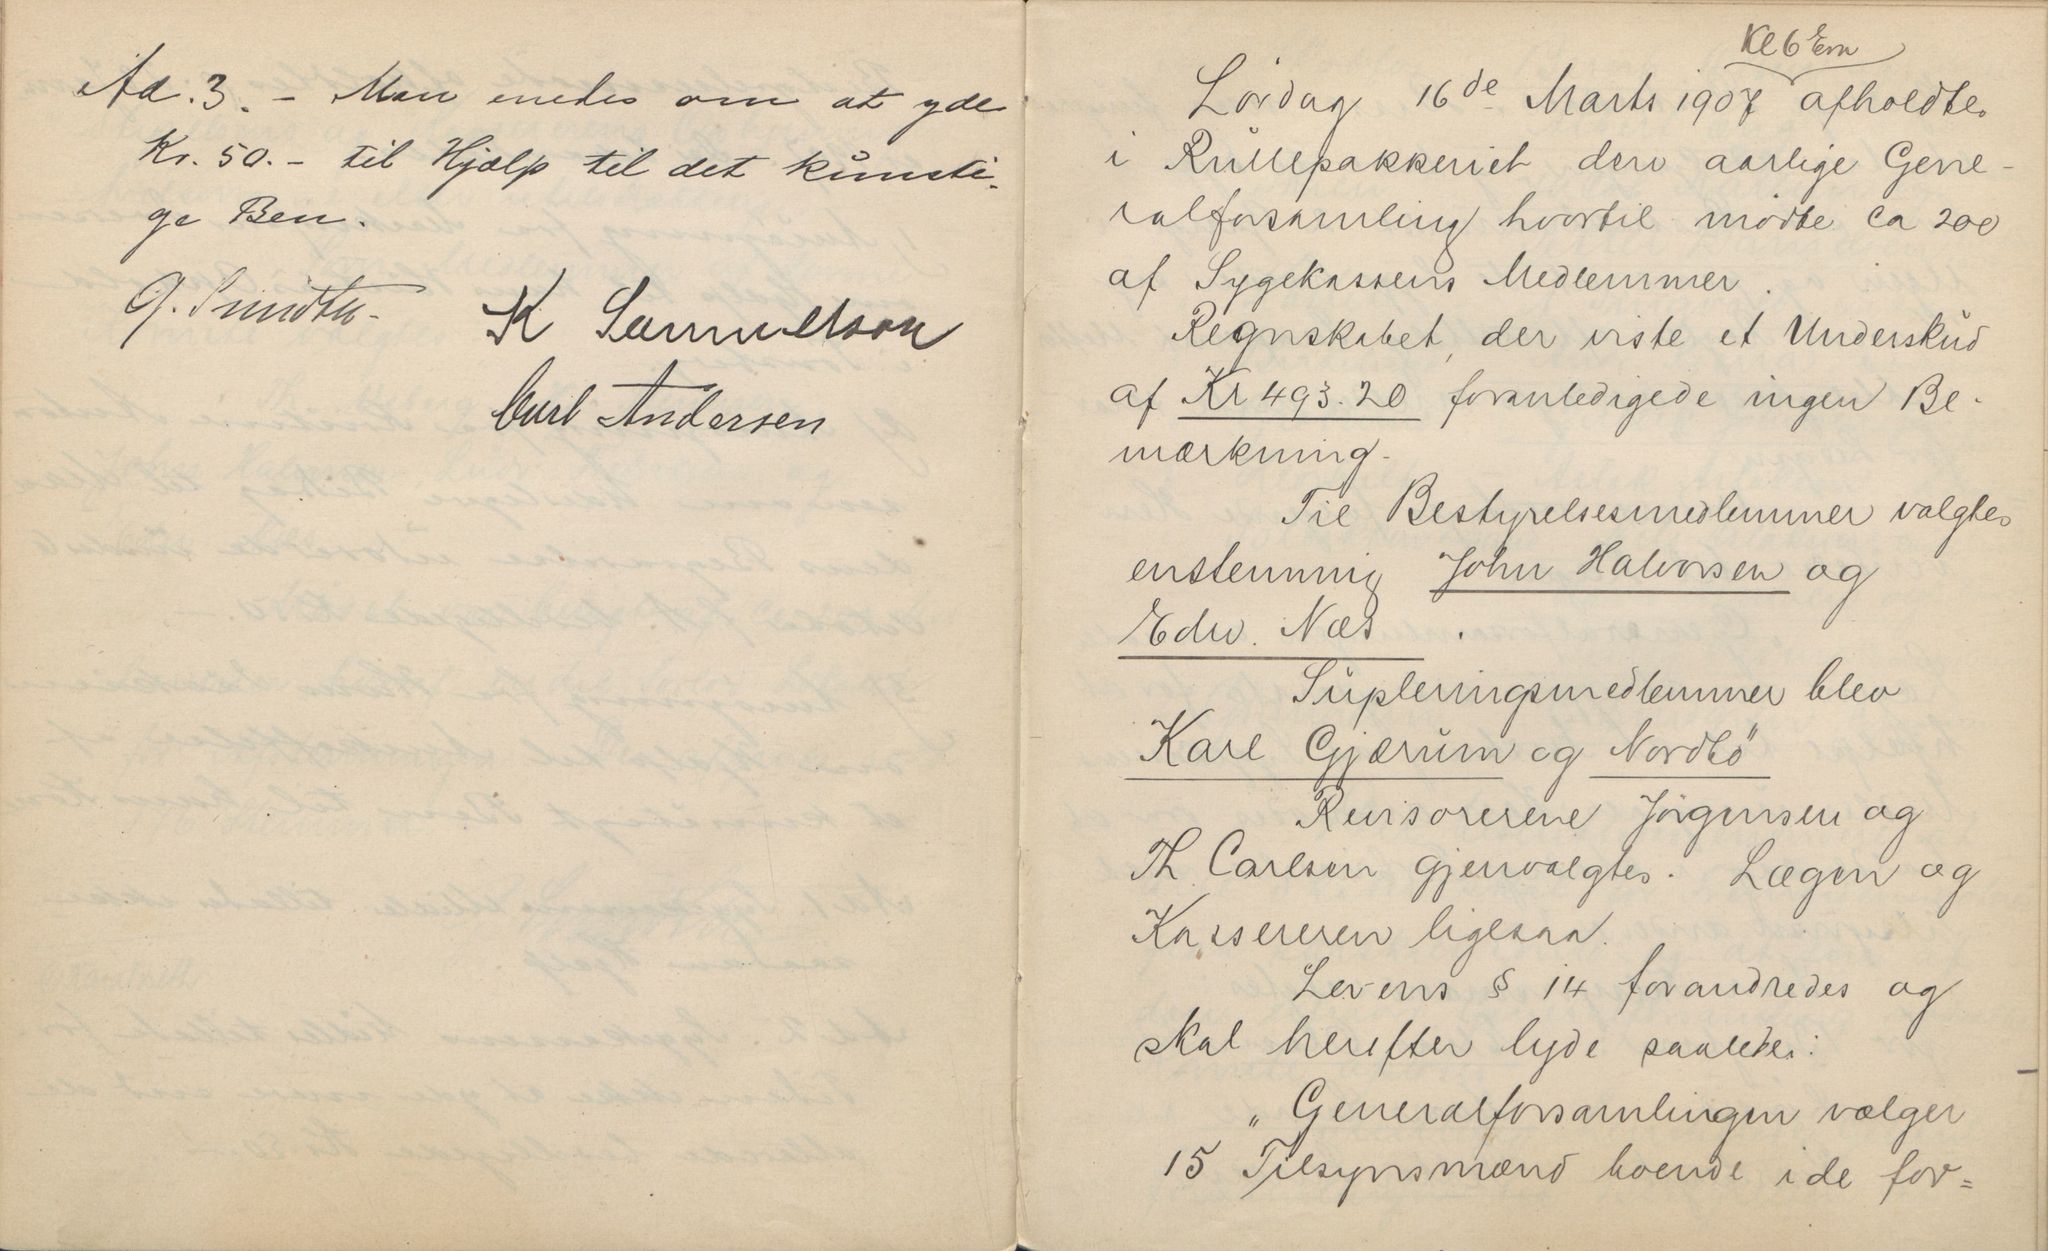 Ad. 3. - Man enedes om at yde
Kr. 50. - til Hjælp til det kunsti-
ge Ben.
G. Smidth
K Samuelson
Carl Andersen
Kl 6 Em
Lördag 16de Marts 1907 afholdtes
i Rullepakkeriet den aarlige Gene-
ralforsamling hvortil mödte ca 200
af Sygekassens Medlemmer.
Regnskabet, der viste et Underskud
af Kr 493.20 foranledigede ingen Be-
mærkning.
Til Bestyrelsesmedlemmer valgtes
enstemmig John Halvorsen og
Edw. Næs.
Supleringsmedlemmer blev
Karl Gjærum og Nordbö
Revisorerene Jörgensen og
Th. Carlsen gjenvalgtes. Lægen og
Kassereren ligesaa.
Lovens § 14 forandredes og
skal herefter lyde saaledes:
„Generalforsamlingen vælger
15 Tilsynsmænd boende i de for=